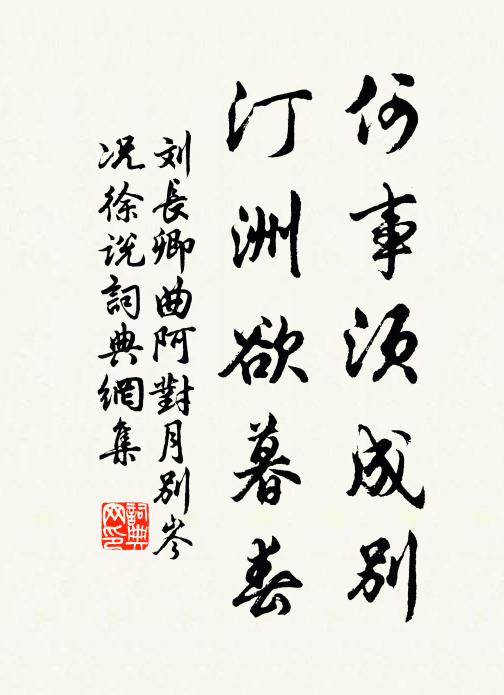 何事须成别
汀洲欲暮春
刘長卿曲阿對月别岑
况徐说詞典網集
詞典
网印